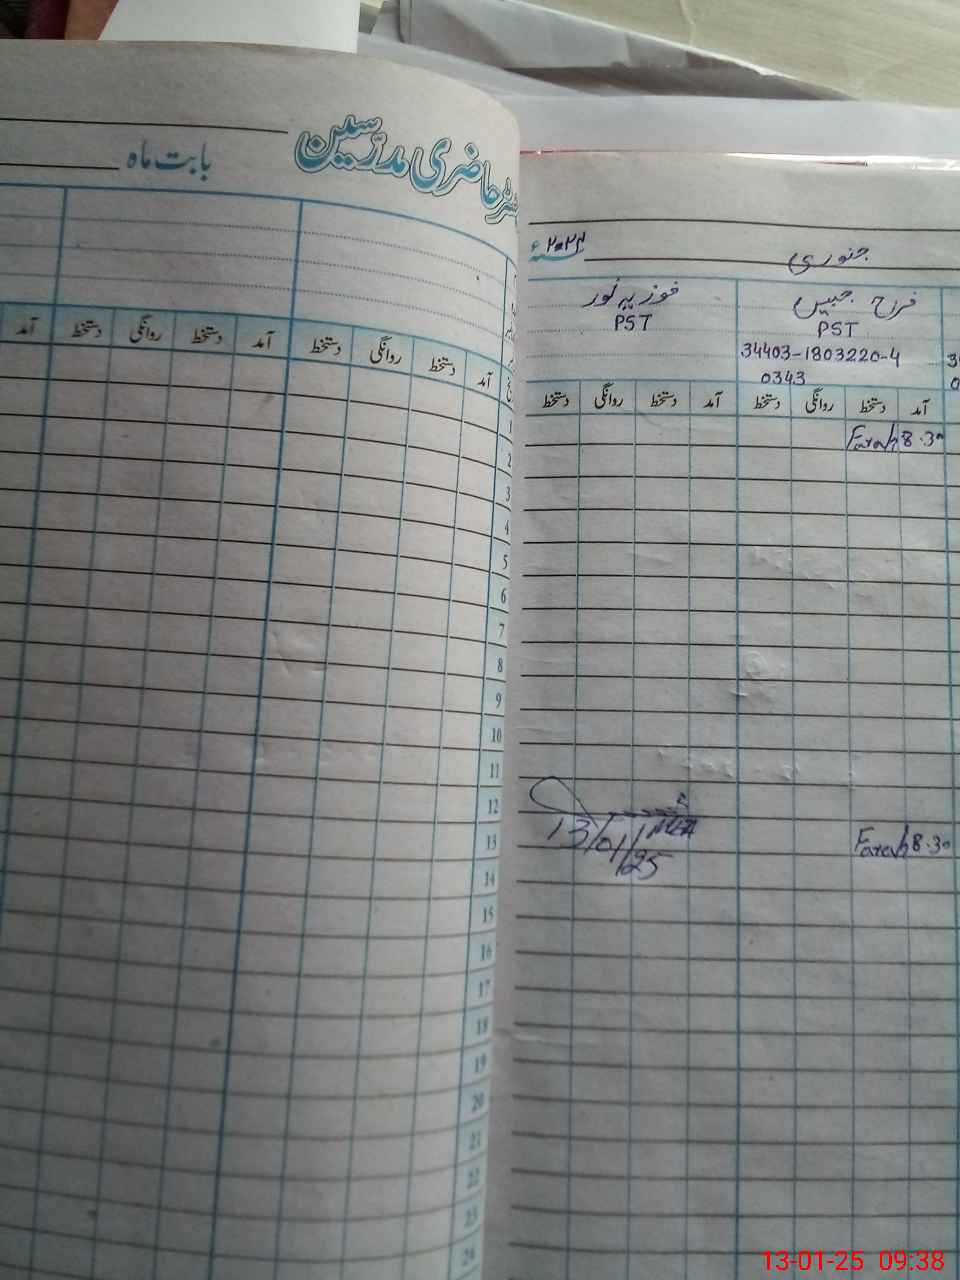 رجسٹر حاضری مدرّسین
بابت ماہ
آمد دستخط روانگی دستخط آمد دستخط روانگی دستخط آمد
1
2
3
4
5
6
7
8
9
10
11
12
13
14
15
16
17
18
19
20
21
22
23
24
جنوری
فرح جبیں فوزیہ نور
PST PST
34403-1803220-4
0343
آمد دستخط روانگی دستخط آمد دستخط روانگی دستخط
Farah 8.30
Farah 8.30
13/01/25
13-01-25 09:38